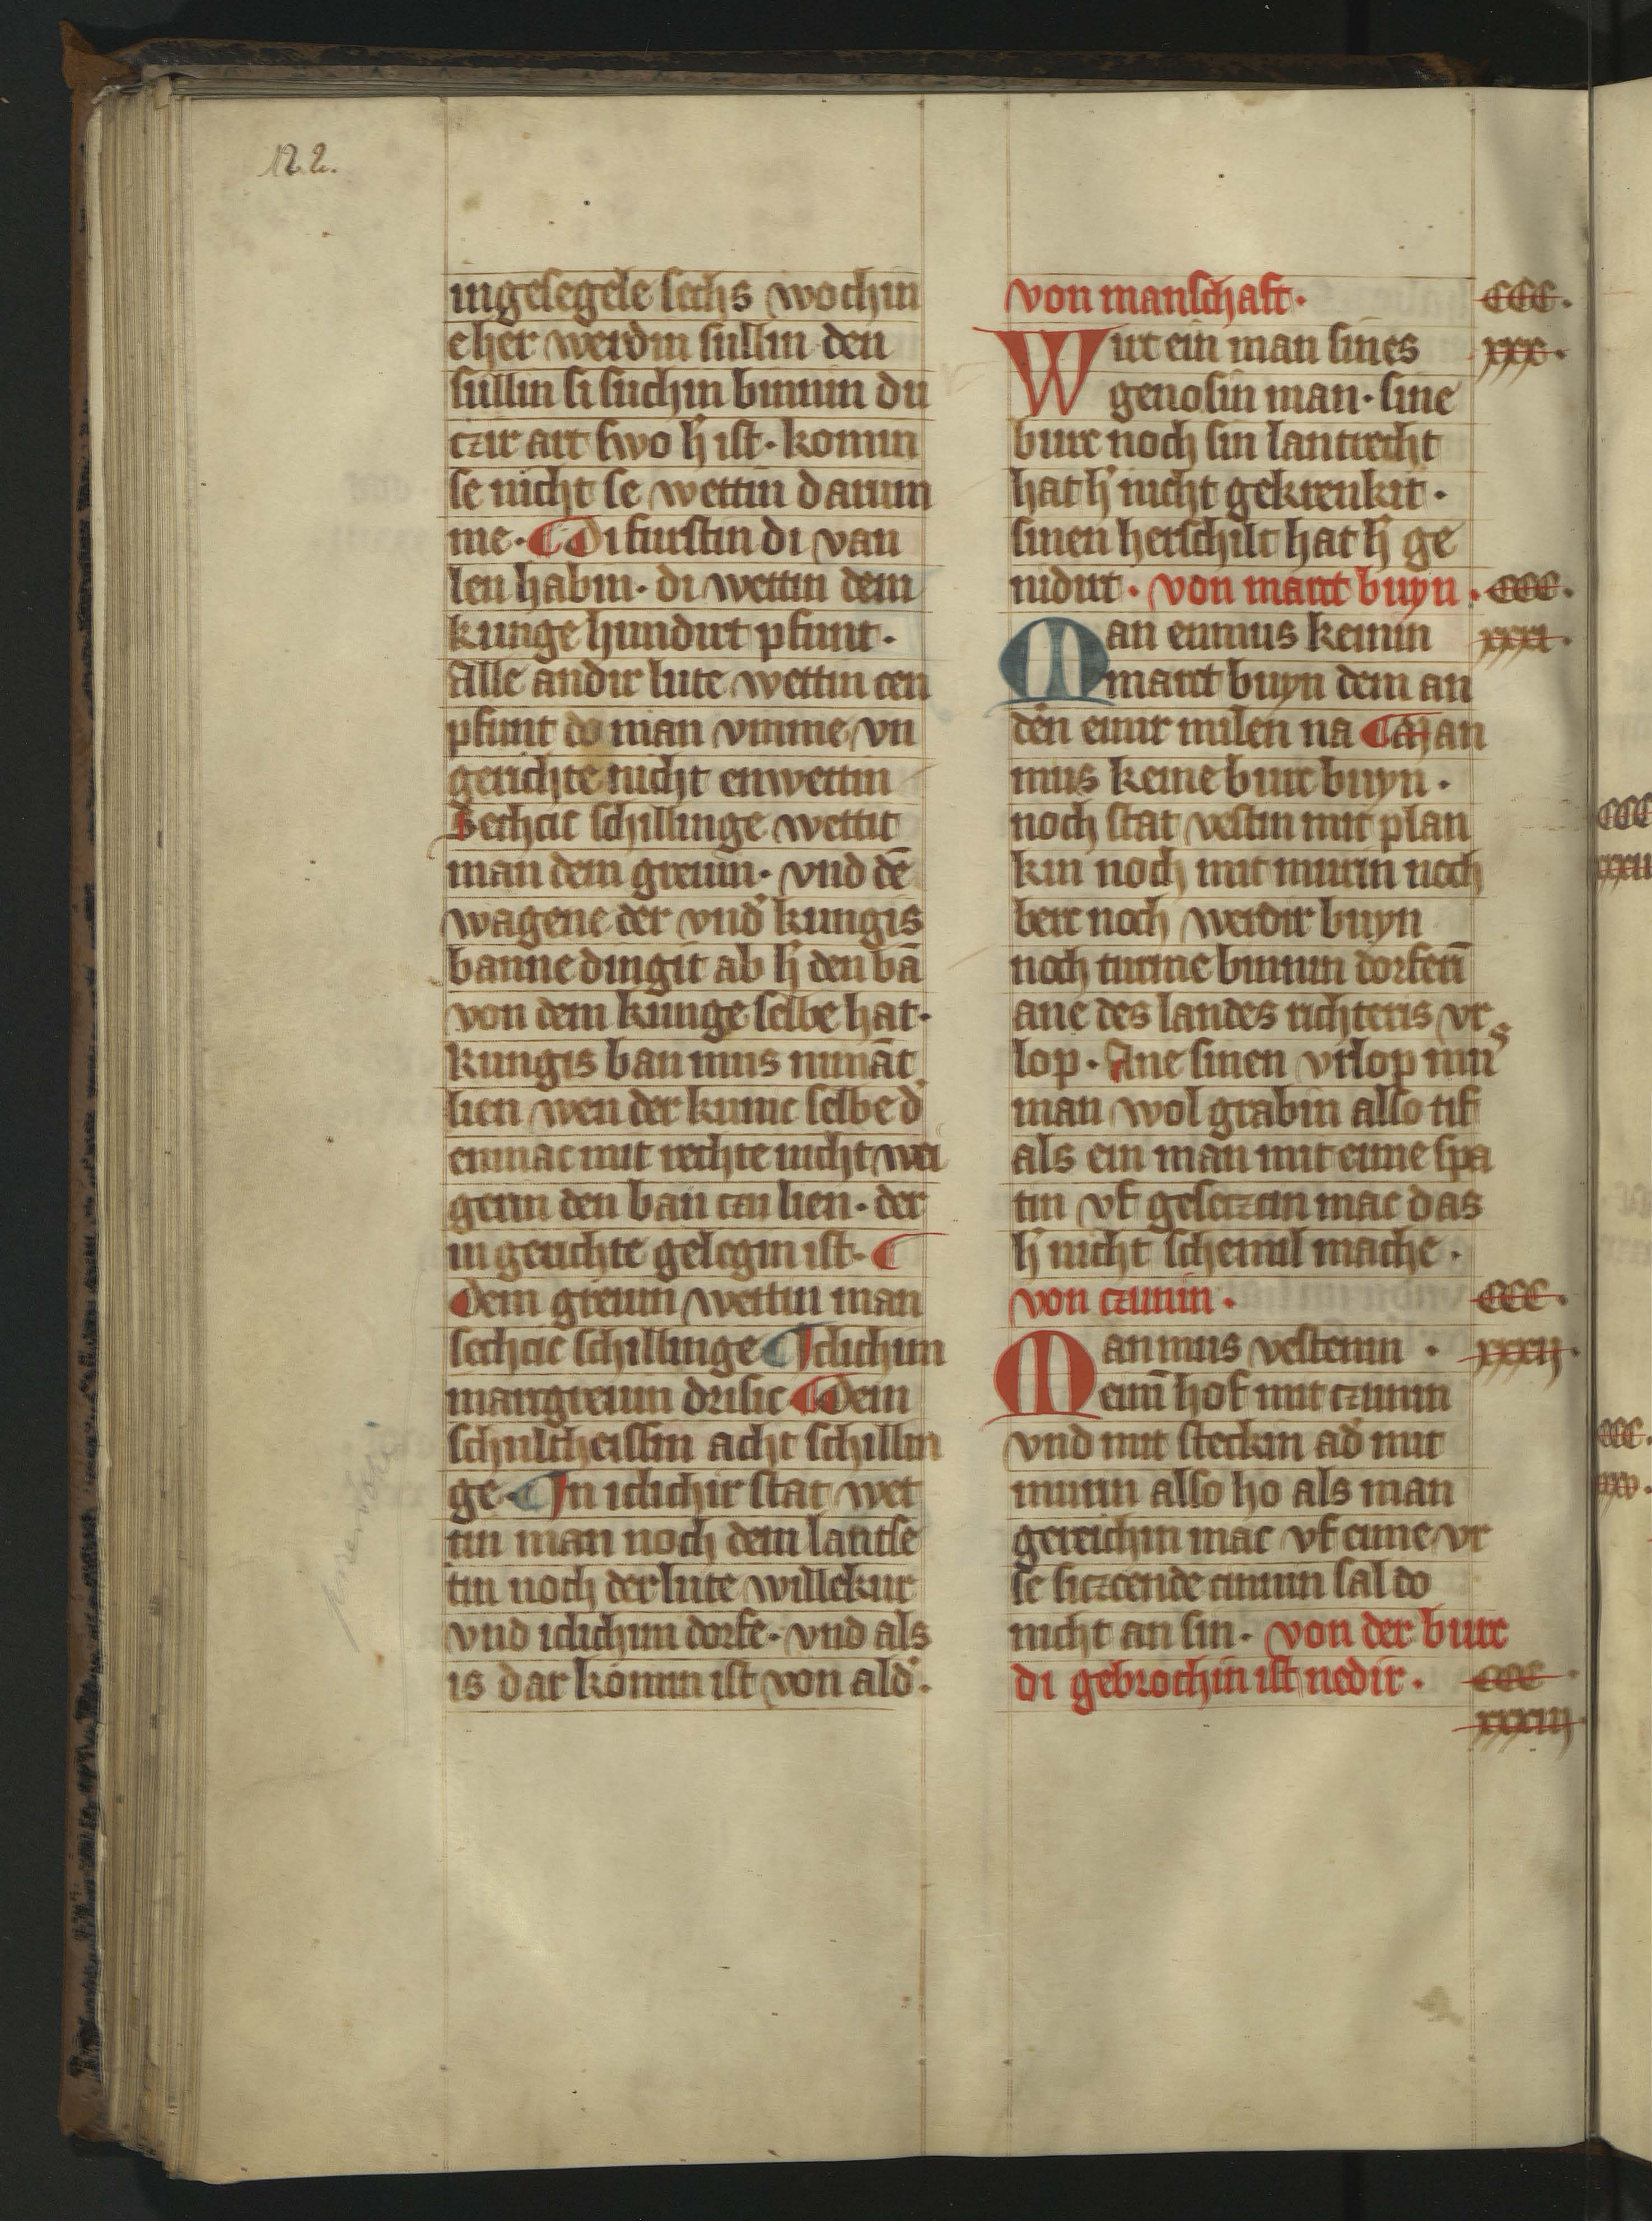 122.
ingeſegele ſechs wochin
eher werdin ſullin den
ſullin ſi ſuchin binnin du
czir art ſwo h̓ iſt · komin
ſe nicht ſe wettin darum
me · Di furſtin di van
len habin · di wettin dem
kunge hundirt pfunt ·
Alle andir lute wettin cen
pfunt do man vmme vn
gerichte nicht enwettin
Sechcic ſchillinge wettit
man dem greuin · vnd dē
wagene der vnd̓ kungis
banne dingit ab h̓ den bā
von dem kunge ſelbe hat ·
kungis ban mus nimāt
lien wen der kunic ſelbe d̓
enmac mit rechte nicht wei
gerin den ban czu lien · der
in gerichte gelegin iſt ·
Dem greuin wettin man
ſechcic ſchillinge Iclichim
margreuin driſic Dem
ſchultheiſſin acht ſchillin
ge · In iclichir ſtat wet
tin man noch dem lantſe
tin noch der lute willekur
vnd iclichim dorfe · vnd als
is dar komin iſt von ald̓ ·
von manſchaft · CCC ·
Wirt ein man ſines xxx ·
genoſin man · ſine
burc noch ſin lantrecht
hat h̓ nicht gekrenkit ·
ſinen herſchilt hat h̓ ge
nidirt · von marct buyn · CCC ·
Man enmus keinin xxxi ·
marct buyn dem an
dēn einir milen na Man
mus keine burc buyn ·
noch ſtat veſtin mit plan
kin noch mit murin noch
berc noch werdir buyn
noch turme binnin dorferī
ane des landes richteris vr
lop · Ane ſinen vrlop mus
man wol grabin alſo tif
als ein man mit eime ſpa
tin vf geſcizcin mac das
h̓ nicht ſchemil mache ·
von czunin · CCC ·
Man mus veſtenin · xxxii ·
einī hof mit czunin
vnd mit ſteckin ad̓ mit
murin alſo ho als man
gereichin mac vf eime vr
ſe ſiczcende cinnin ſal do
nicht an ſin · von der burc
di gebrochin iſt nedir · CCC ·
xxxiii ·